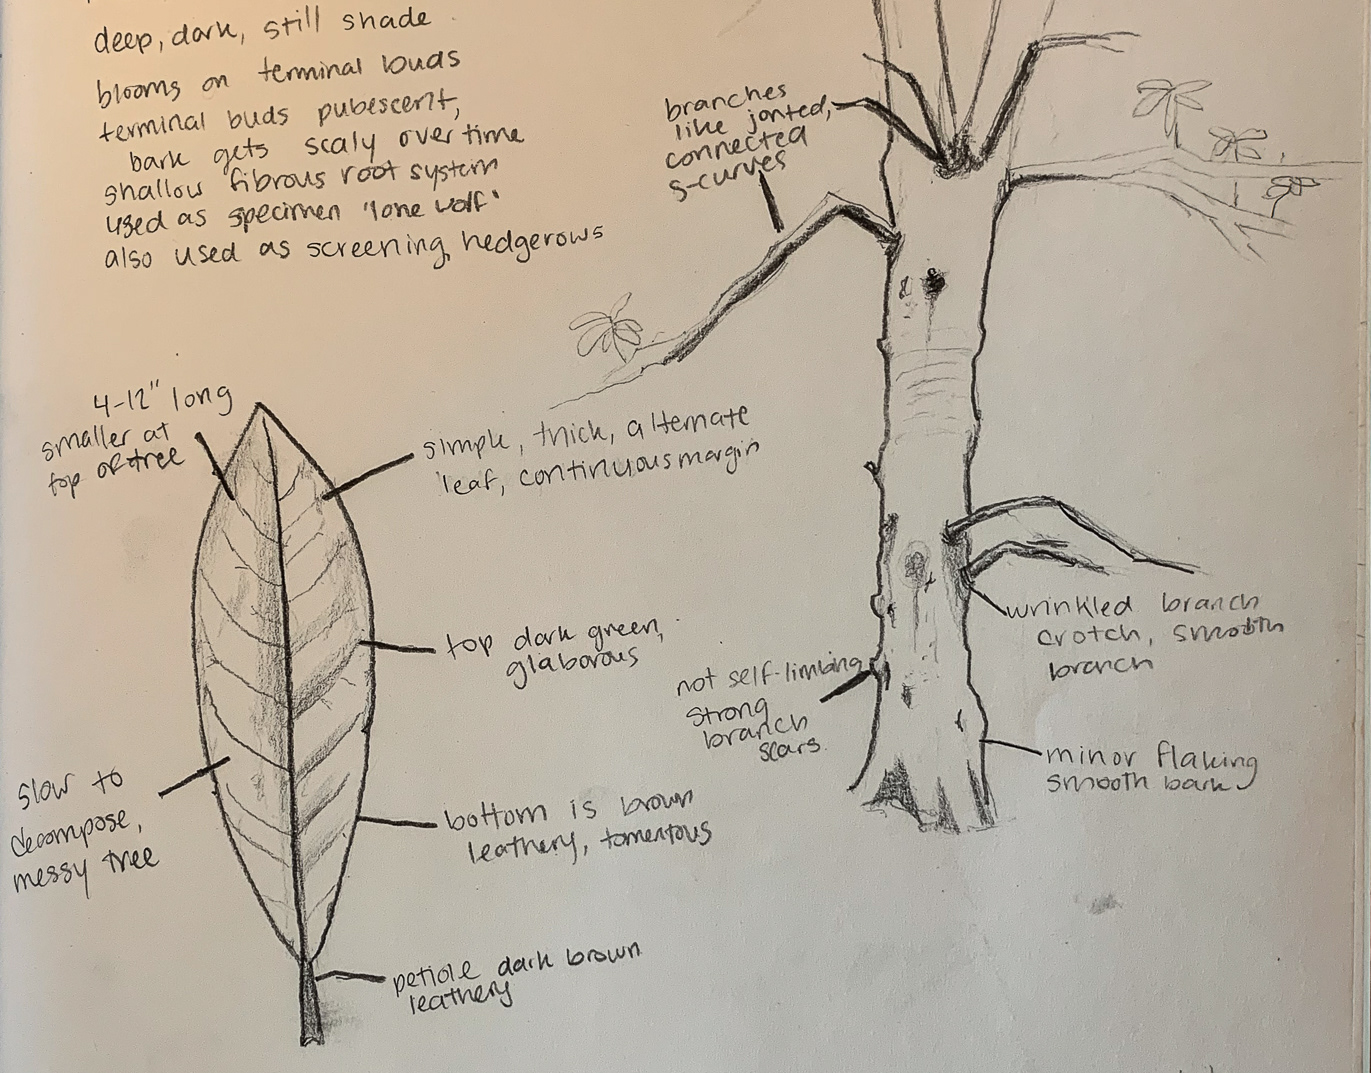 deep, dark, still shade
blooms on terminal buds
terminal buds pubescent,
bark gets scaly over time
shallow fibrous root system
used as specimen 'lone wolf'
also used as screening, hedgerows
branches
like jonted,
connected
s-curves
4-12" long
smaller at
top of tree
simple, thick, alternate
leaf, continuous margin
top dark green,
glaborous
wrinkled branch
crotch, smooth
branch
not self-limbing
strong
branch
scars
minor flaking
smooth bark
slow to
decompose,
messy tree
bottom is brown
leathery, tomentous
petiole dark brown
leathery